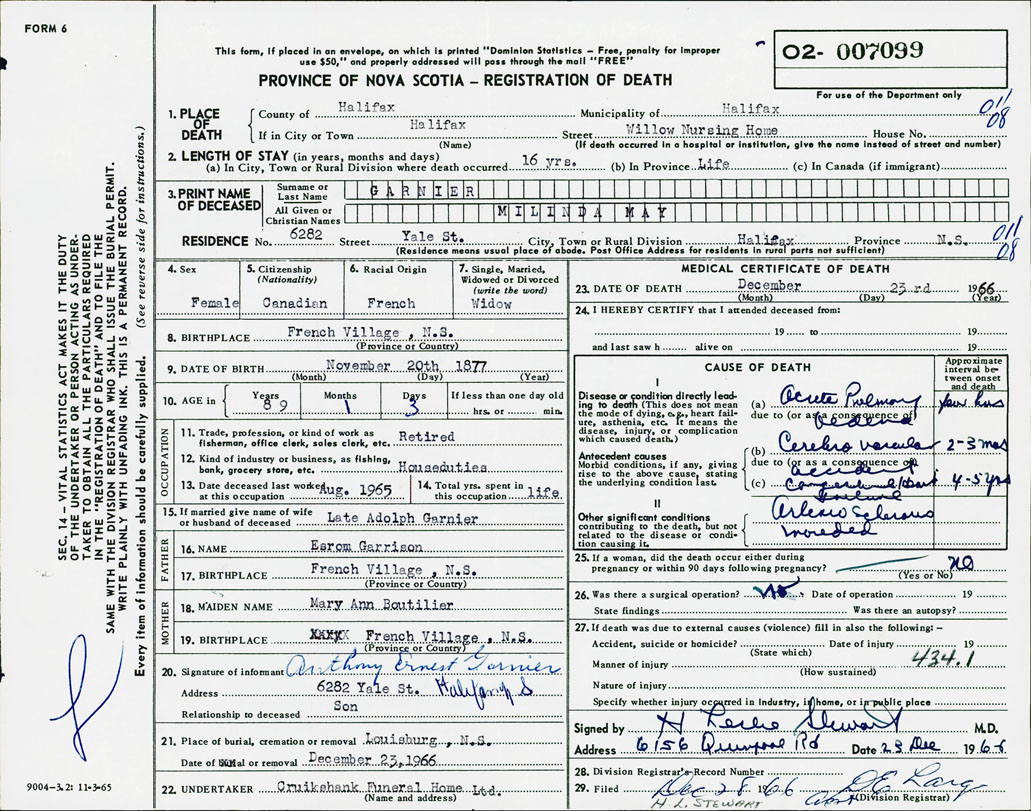 FORM 6
This form, if placed in an envelope, on which is printed "Dominion Statistics – Free, penalty for improper
use $50," and properly addressed will pass through the mail "FREE"
PROVINCE OF NOVA SCOTIA – REGISTRATION OF DEATH
O2- 007099
For use of the Department only
1. PLACE OF DEATH
County of Halifax Municipality of Halifax 011/08
If in City or Town Halifax Street Willow Nursing Home House No.
(Name) (If death occurred in a hospital or institution, give the name instead of street and number)
2. LENGTH OF STAY (in years, months and days)
(a) In City, Town or Rural Division where death occurred 16 yrs. (b) In Province Life (c) In Canada (if immigrant)
3. PRINT NAME OF DECEASED
Surname or Last Name GARNIER
All Given or Christian Names MILINDA MAY
RESIDENCE No. 6282 Street Yale St. City, Town or Rural Division Halifax Province N.S. 011/08
(Residence means usual place of abode. Post Office Address for residents in rural parts not sufficient)
4. Sex
Female
5. Citizenship (Nationality)
Canadian
6. Racial Origin
French
7. Single, Married, Widowed or Divorced (write the word)
Widow
8. BIRTHPLACE French Village , N.S.
(Province or Country)
9. DATE OF BIRTH November 20th 1877
(Month) (Day) (Year)
10. AGE in Years 89 Months 1 Days 3 If less than one day old
hrs. or min.
OCCUPATION
11. Trade, profession, or kind of work as
fisherman, office clerk, sales clerk, etc. Retired
12. Kind of industry or business, as fishing,
bank, grocery store, etc. Houseduties
13. Date deceased last worked
at this occupation Aug. 1965
14. Total yrs. spent in
this occupation life
15. If married give name of wife
or husband of deceased Late Adolph Garnier
FATHER
16. NAME Esrom Garrison
17. BIRTHPLACE French Village , N.S.
(Province or Country)
MOTHER
18. MAIDEN NAME Mary Ann Boutilier
19. BIRTHPLACE XXXXX French Village , N.S.
(Province or Country)
20. Signature of informant Anthony Ernest Garnier
Address 6282 Yale St. Halifax N S
Relationship to deceased Son
21. Place of burial, cremation or removal Louisburg , N.S.
Date of burial or removal December 23,1966
22. UNDERTAKER Cruikshank Funeral Home Ltd.
(Name and address)
MEDICAL CERTIFICATE OF DEATH
23. DATE OF DEATH December 23 rd 1966
(Month) (Day) (Year)
24. I HEREBY CERTIFY that I attended deceased from:
19 to 19
and last saw h alive on 19
CAUSE OF DEATH
Approximate interval between onset and death
I
Disease or condition directly lead-
ing to death (This does not mean
the mode of dying, e.g., heart fail-
ure, asthenia, etc. It means the
disease, injury, or complication
which caused death.)
(a) Acute Pulmonary few hrs
due to (or as a consequence of)
Oedema
Antecedent causes
Morbid conditions, if any, giving
rise to the above cause, stating
the underlying condition last.
(b) Cerebro vascular 2-3 mos
due to (or as a consequence of)
accident
(c) Congestive Heart 4-5 yrs
Failure
II
Other significant conditions
contributing to the death, but not
related to the disease or condi-
tion causing it.
Arterio Sclerosis
25. If a woman, did the death occur either during
pregnancy or within 90 days following pregnancy? no
(Yes or No)
26. Was there a surgical operation? No Date of operation 19
State findings Was there an autopsy?
27. If death was due to external causes (violence) fill in also the following: –
Accident, suicide or homicide? Date of injury 19
(State which) 434.1
Manner of injury
(How sustained)
Nature of injury
Specify whether injury occurred in Industry, in home, or in public place
Signed by H Leslie Stewart M.D.
Address 6156 Quinpool Rd Date 23 Dec 1966
28. Division Registrar's Record Number
29. Filed Dec 28 1966
H. L. STEWART (Division Registrar)
SEC. 14 – VITAL STATISTICS ACT MAKES IT THE DUTY
OF THE UNDERTAKER OR PERSON ACTING AS UNDER-
TAKER TO OBTAIN ALL THE PARTICULARS REQUIRED
IN THE "REGISTRATION OF DEATH" AND TO FILE THE
SAME WITH THE DIVISION REGISTRAR WHO SHALL ISSUE THE BURIAL PERMIT.
WRITE PLAINLY WITH UNFADING INK. THIS IS A PERMANENT RECORD.
Every item of information should be carefully supplied. (See reverse side for instructions.)
9004-3.2: 11-3-65